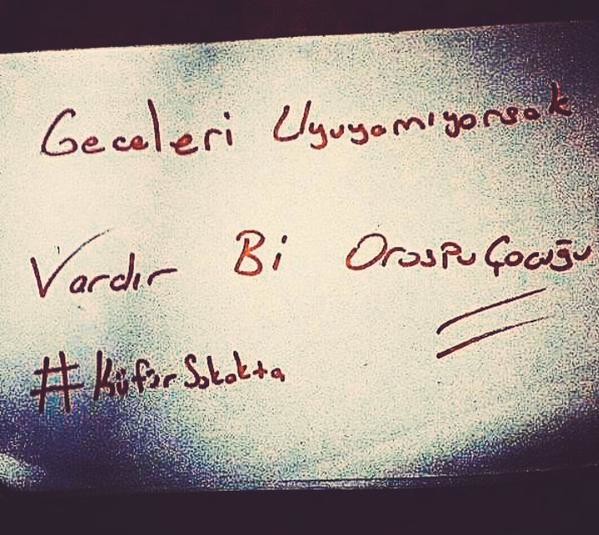 Geceleri Uyuyamıyorsak
Vardır Bi OrospuÇocuğu
#KüfürSokakta